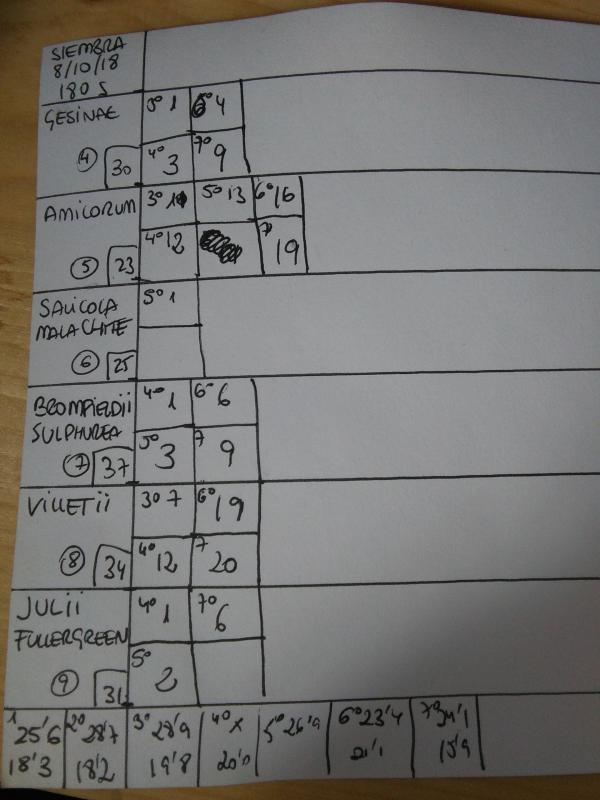 SIEMBRA
8/10/18
180 S
GESINAE
5º 1
6º 4
④ 30
4º 3
7º 9
AMICORUM
5º 13
6º 16
⑤ 23
4º 12
7º 19
SALICOLA
MALACHITE
5º 1
⑥ 25
BROMFIELDII
SULPHUREA
4º 1
6º 6
⑦ 37
5º 3
7 9
VILLETII
3º 7
6º 19
⑧ 34
4º 12
7 20
JULII
FULLERGREEN
4º 1
7º 6
⑨ 31
5º 2
1 25'6
18'3
2º 28'7
18'2
3º 28'9
19'8
4º x
20'0
5º 26'9
6º 23'4
21'1
7º 24'1
15'9